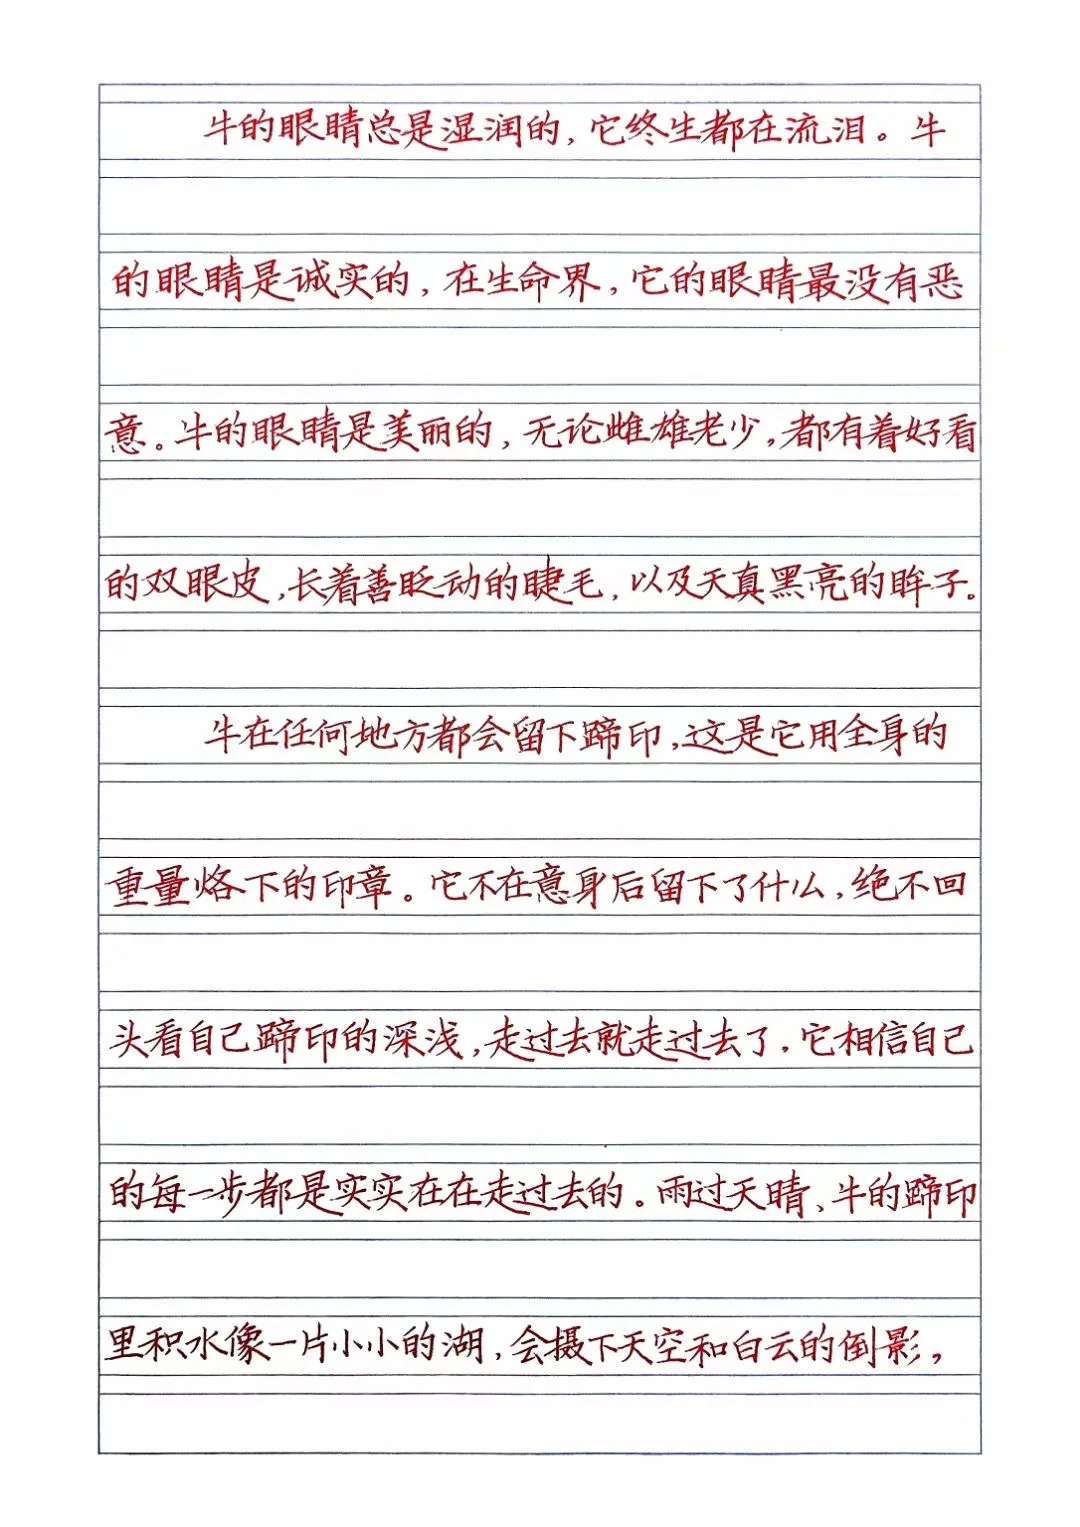 牛的眼睛总是湿润的，它终生都在流泪。牛
的眼睛是诚实的，在生命界，它的眼睛最没有恶
意。牛的眼睛是美丽的，无论雌雄老少，都有着好看
的双眼皮，长着善眨动的睫毛，以及天真黑亮的眸子。
牛在任何地方都会留下蹄印，这是它用全身的
重量烙下的印章。它不在意身后留下了什么，绝不回
头看自己蹄印的深浅，走过去就走过去了，它相信自己
的每一步都是实实在在走过去的。雨过天晴、牛的蹄印
里积水像一片小小的湖，会摄下天空和白云的倒影，